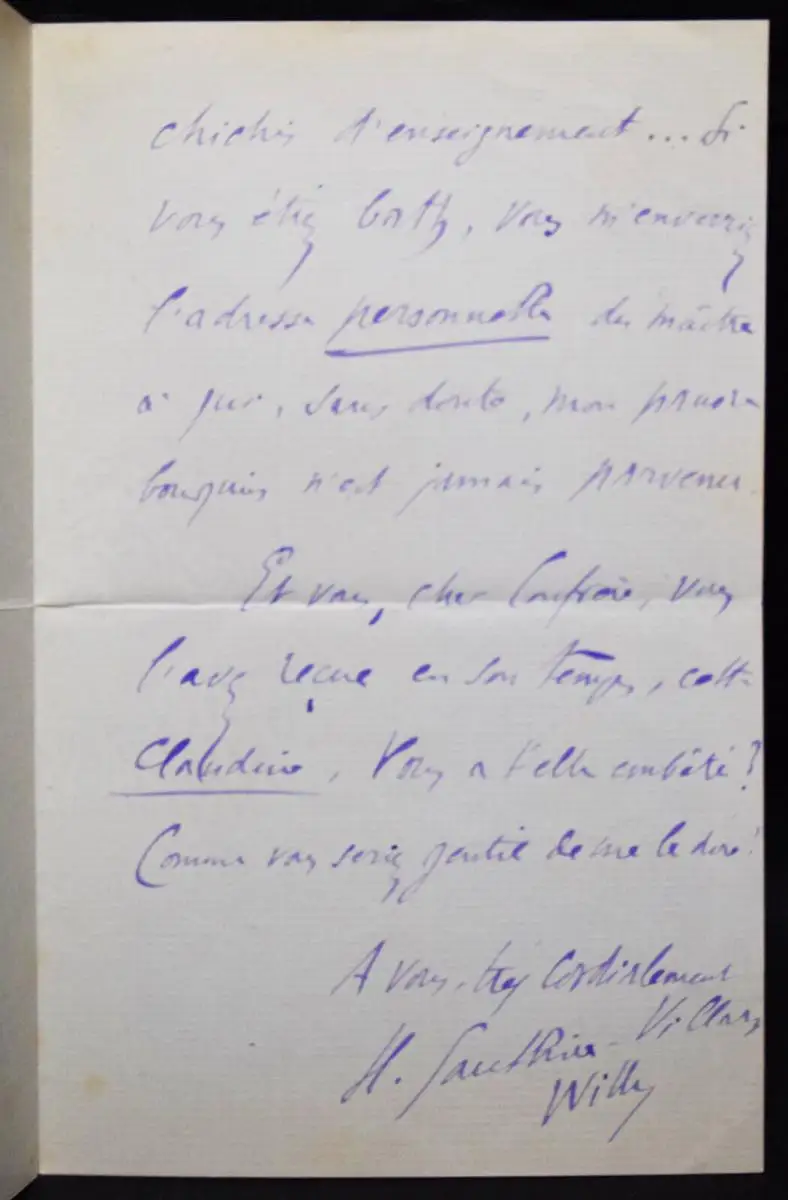 chichis d'enseignement... Si
vous étiez, vous m'enverriez
l'adresse personnelle du maître
à qui, sans doute, mon pauvre
bouquin n'est jamais parvenu.
Et vous, cher Confrère, vous
l'avez reçue en son temps, cette
Claudine, Vous a t'elle embêté?
Comme vous seriez gentil de me le dire!
A vous, très cordialement
H. Gauthier-Villars
Willy